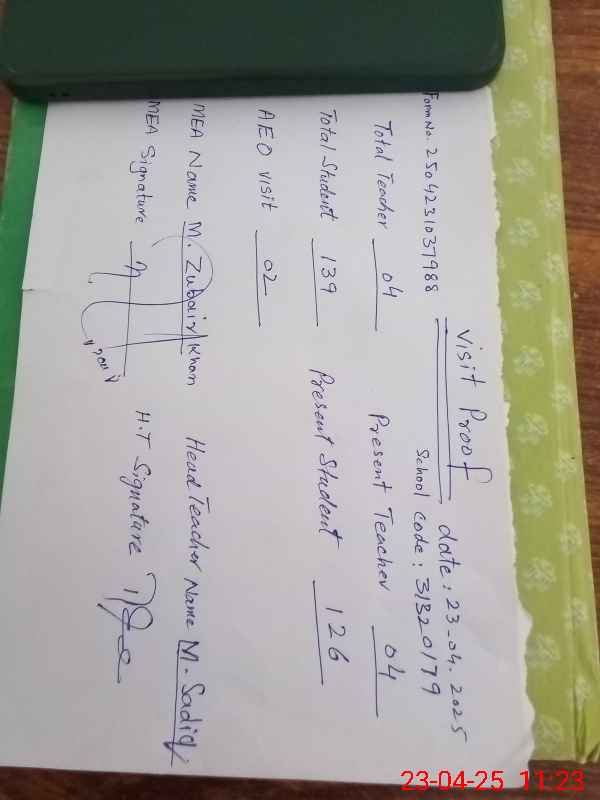 Visit Proof
date: 23-04-2025
Form No. 2504231037988 School Code: 31320179
Total Teacher 04 Present Teacher 04
Total Student 139 Present Student 126
AEO visit 02
MEA Name M. Zubair Khan Head Teacher Name M. Sadiq
MEA Signature H.T Signature
23-04-25 11:23